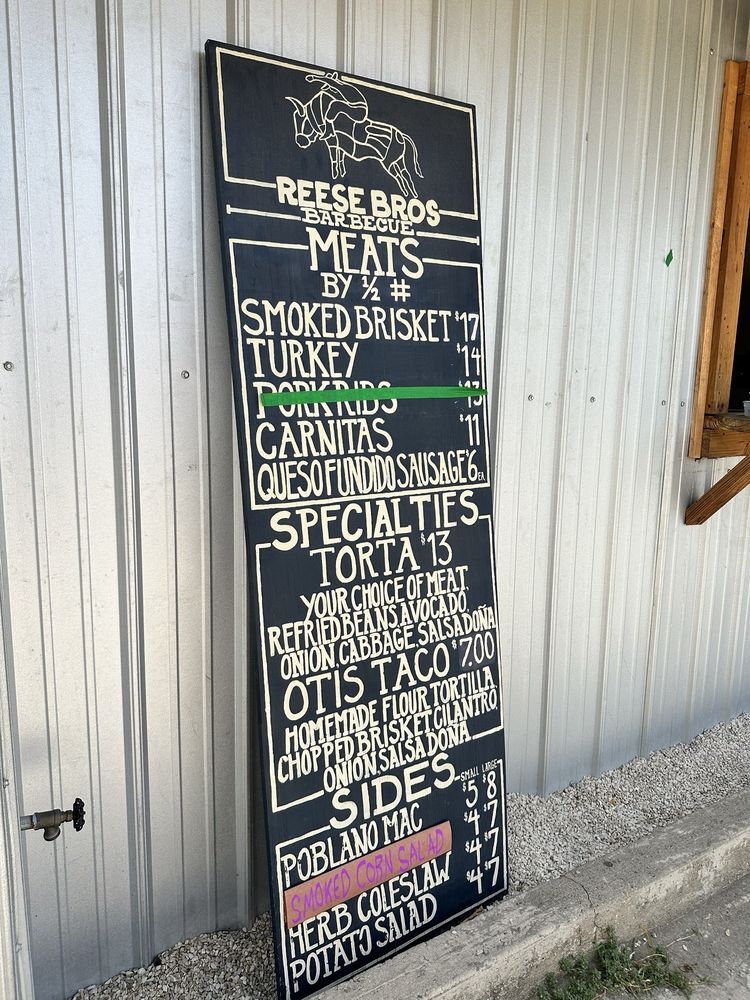 REESE BROS
BARBECUE
MEATS
BY ½ #
SMOKED BRISKET $17
TURKEY $14
PORK RIBS $13
CARNITAS $11
QUESO FUNDIDO SAUSAGE $6 EA
SPECIALTIES
TORTA $13
YOUR CHOICE OF MEAT
REFRIED BEANS, AVOCADO,
ONION, CABBAGE, SALSA DOÑA
OTIS TACO $7.00
HOMEMADE FLOUR TORTILLA
CHOPPED BRISKET, CILANTRO,
ONION, SALSA DOÑA
SIDES SMALL LARGE
POBLANO MAC $5 $8
SMOKED CORN SALAD $4 $7
HERB COLESLAW $4 $7
POTATO SALAD $4 $7